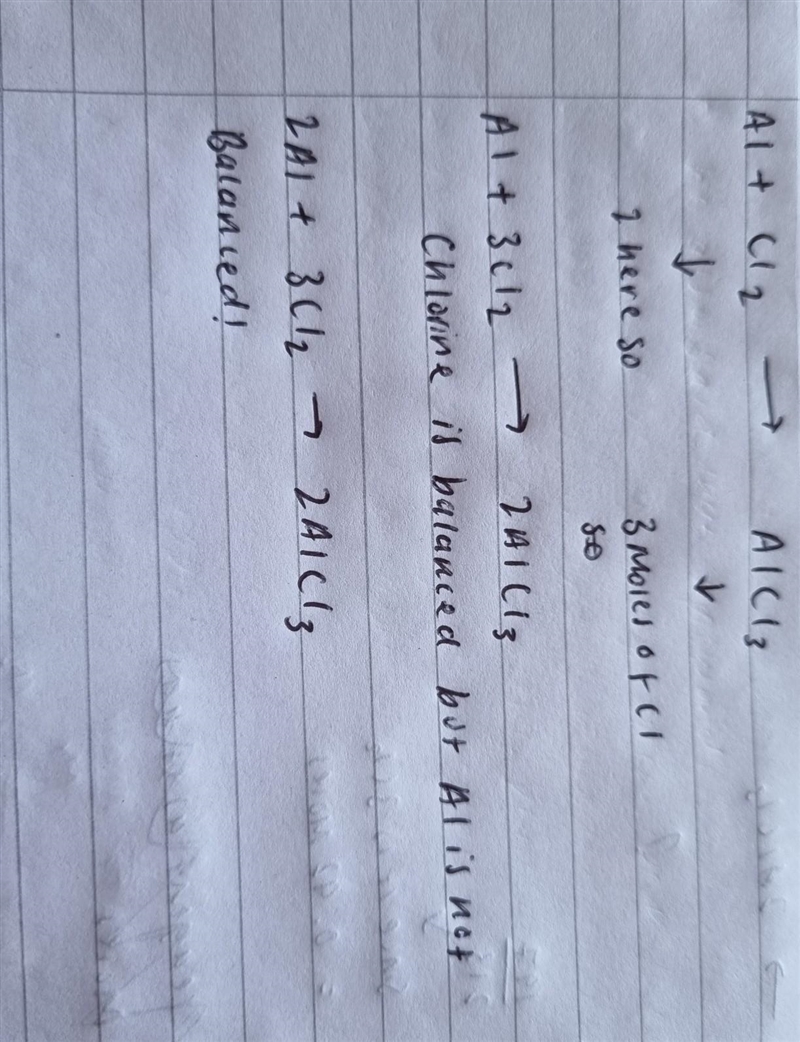 Al + Cl₂ → AlCl₃
↓ ↓
2 here so 3 Moles of Cl
so
Al + 3Cl₂ → 2AlCl₃
Chlorine is balanced but Al is not
2Al + 3Cl₂ → 2AlCl₃
Balanced!